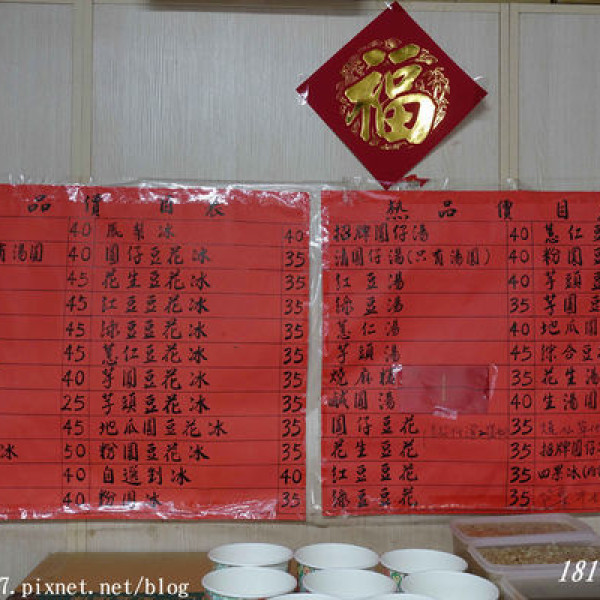 福
品價目表
40 鳳梨冰 40
有湯圓 40 圓仔豆花冰 35
45 花生豆花冰 35
45 紅豆豆花冰 35
45 綠豆豆花冰 35
45 薏仁豆花冰 35
40 芋圓豆花冰 35
25 芋頭豆花冰 35
45 地瓜圓豆花冰 35
冰 50 粉圓豆花冰 35
40 自選剉冰 40
40 粉圓冰 35
熱品價目
招牌圓仔湯 40 薏仁豆
清圓仔湯(只有湯圓) 40 粉圓豆
紅豆湯 40 芋頭豆
綠豆湯 35 芋圓豆
薏仁湯 40 地瓜圓
芋頭湯 45 綜合豆
燒麻糬 35 花生湯
鹹圓湯 40 生湯圓
圓仔豆花 35
花生豆花 35 招牌圓仔
紅豆豆花 35 四果冰
綠豆豆花 35
7.pixnet.net/blog
181